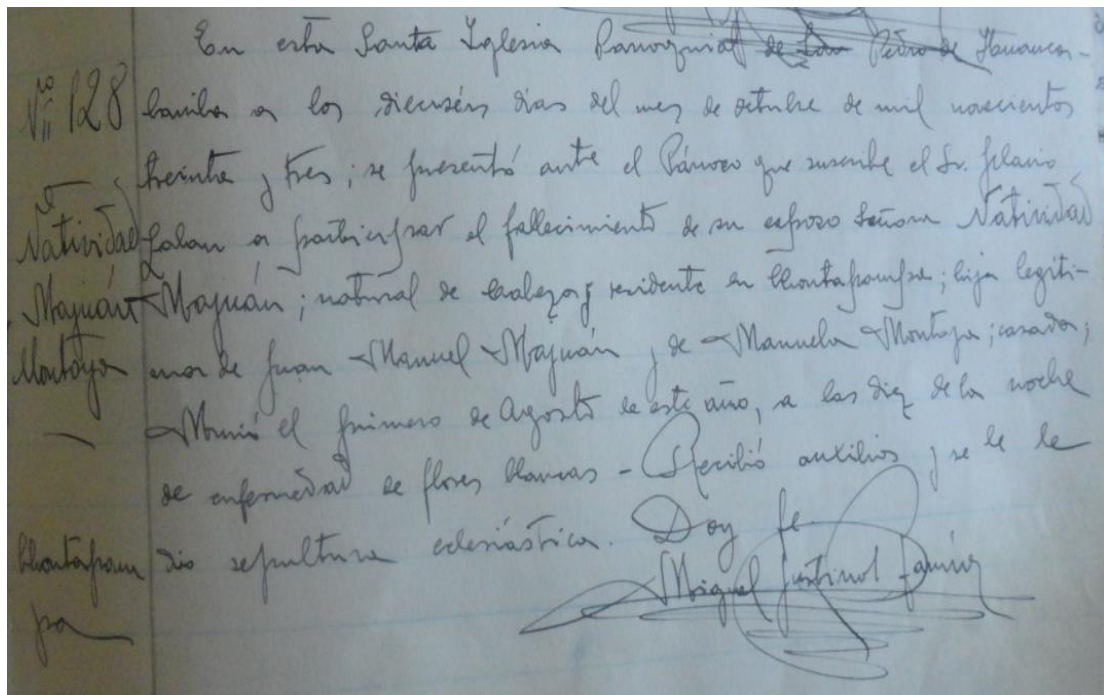 En esta Santa Iglesia Parroquial de San Pedro de Huanca-
Nro 128
bamba a los dieciséis días del mes de octubre de mil novecientos
treinta y tres; se presentó ante el Párroco que suscribe el Sr. Flavio
Natividad
a participar el fallecimiento de su esposa Señora Natividad
Majuán
Majuán; natural de Cabeza y residente en Chontapampa; hija legiti-
Montoya
ma de Juan Manuel Majuán y de Manuela Montoya; casada;
Murió el primero de Agosto de este año, a las diez de la noche
de enfermedad de flores blancas - Recibió auxilios y se le
Chontapam
dio sepultura eclesiástica. Doy fe.
pa
Miguel Ramírez